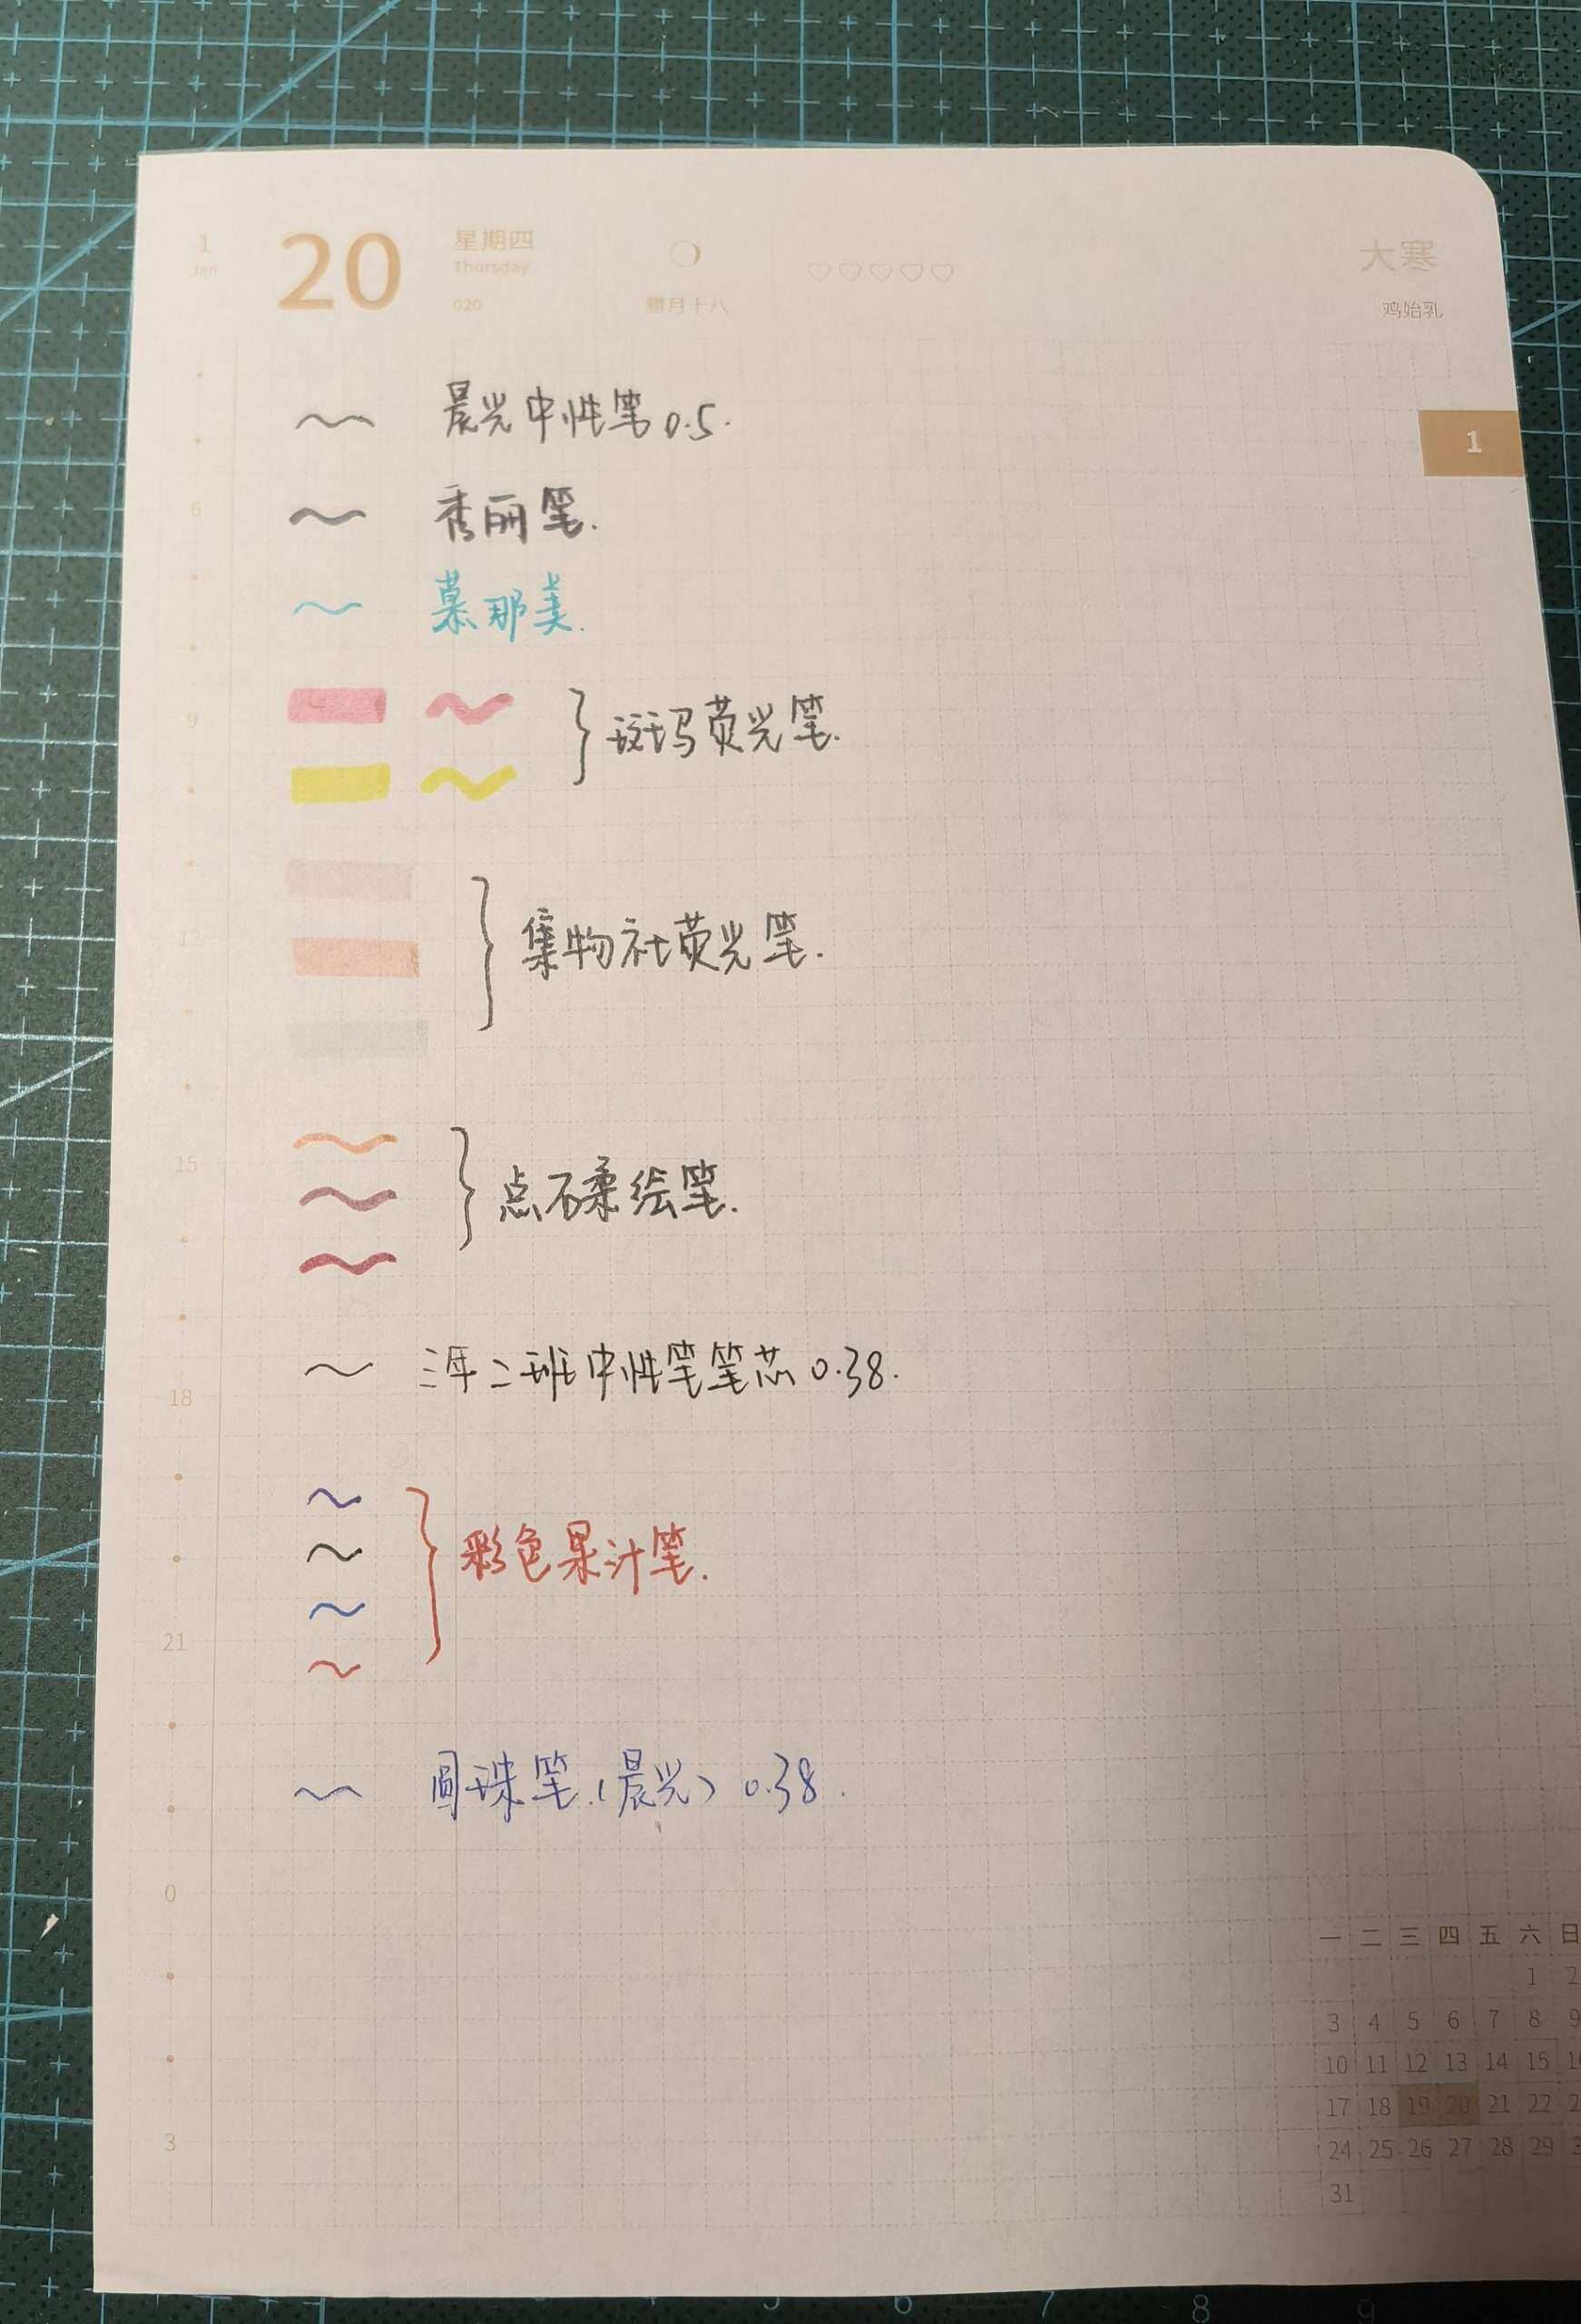 1 20 星期四
Jan Thursday
020 臘月十八
大寒
鸡始乳
1
晨光中性笔0.5.
6 秀丽笔.
慕那美.
9 斑玛荧光笔.
12 集物社荧光笔.
15 点石柔绘笔.
三年二班中性笔笔芯0.38.
18
彩色果汁笔.
21
圆珠笔.(晨光)0.38.
0
3
一 二 三 四 五 六 日
1 2
3 4 5 6 7 8 9
10 11 12 13 14 15
17 18 19 20 21 22
24 25 26 27 28 29
31
5 6 7 8 9